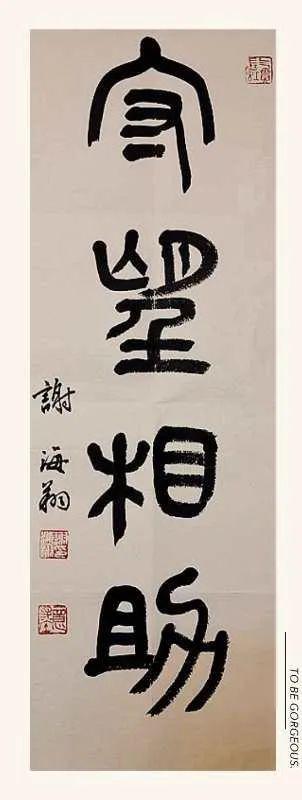 守望相助
謝海翔
TO BE GORGEOUS.